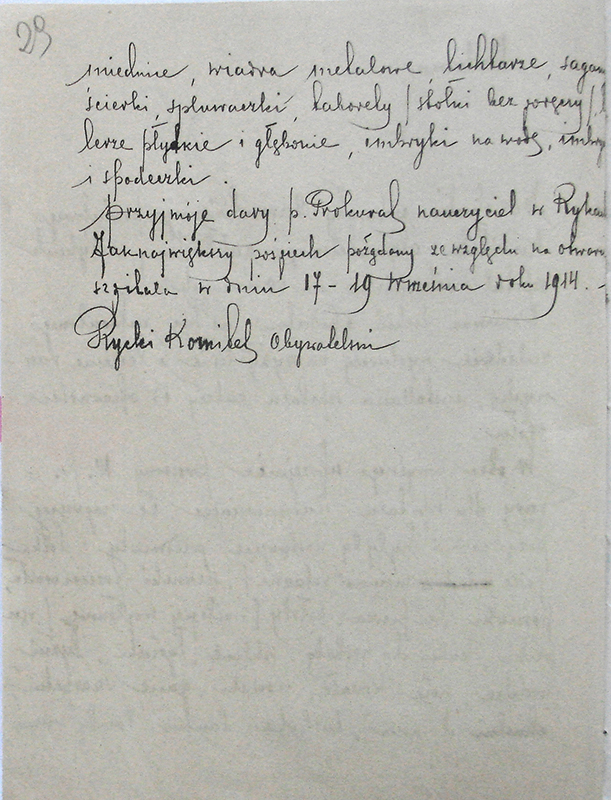 29
miednice, wiadra metalowe, lichtarze, sagan
ścierki, spluwaczki, taborety / stołki bez poręczy /, t
lerze płytkie i głębokie, imbryki na wodę, imbry
i spodeczki.
Przyjmóje dary p. Prokurat nauczyciel w Rykac
Jaknajwiększy pośpiech pożądany ze względu na otwarc
szpitala w dniu 17 - 19 Września roku 1914. -
Rycki Komitet Obywatelski